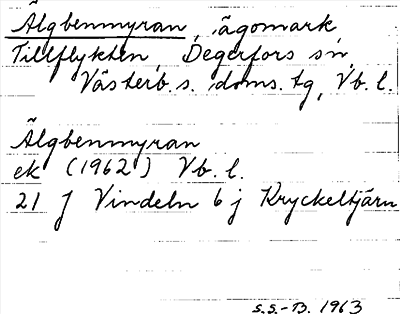 Älgbenmyran, ägomark,
Tillflykten, Degerfors sn,
Västerb. s. doms. tg, Vb. l.
Älgbenmyran
ek (1962) Vb. l.
21 J Vindeln 6 j Kryckeltjärn
S.S.-B. 1963